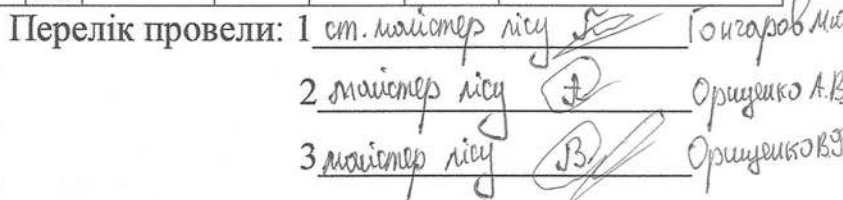 Перелік провели: 1 ст. майстер лісу Гончаров
2 майстер лісу Орищенко А.В
3 майстер лісу Орищенко В.